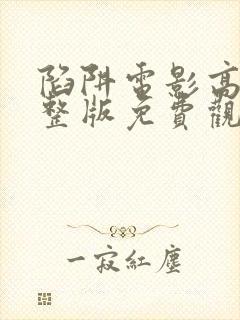 陷阱電影高
整版免費觀
一寂紅塵